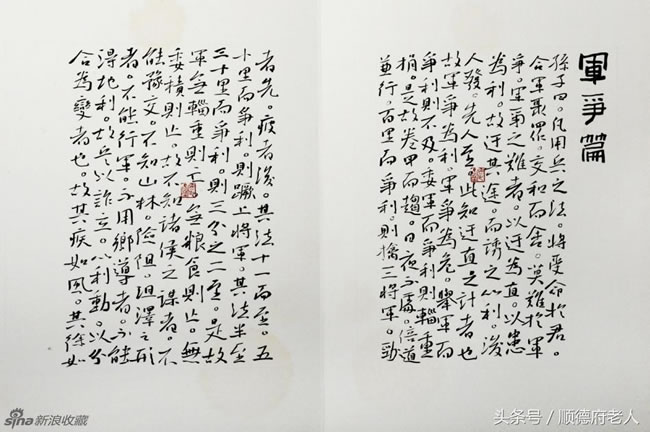 軍爭篇
孫子曰。凡用兵之法。將受命於君。
合軍聚眾。交和而舍。莫難於軍
爭。軍爭之難者。以迂為直。以患
為利。故迂其途。而誘之以利。後
人發。先人至。此知迂直之計者也
故軍爭為利。軍爭為危。舉軍而
爭利則不及。委軍而爭利則輜重
捐。是故卷甲而趨。日夜不處。倍道
兼行。百里而爭利。則擒三將軍。勁
者先。疲者後。其法十一而至。五
十里而爭利。則蹶上將軍。其法半至
三十里而爭利。則三分之二至。是故
軍無輜重則亡。無粮食則亡。無
委積則亡。故不知諸侯之謀者。不
能豫交。不知山林。險阻。沮澤之形
者。不能行軍。不用鄉導者。不能
得地利。故兵以詐立。以利動。以分
合為變者也。故其疾如風。其徐如
sina新浪收藏
头条号 / 顺德府老人